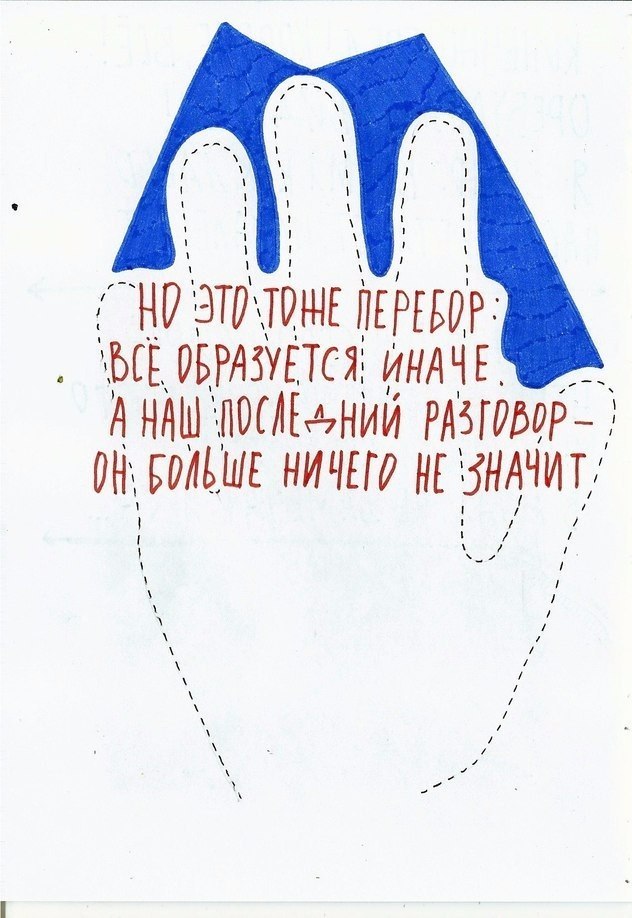 НО ЭТО ТОЖЕ ПЕРЕБОР:
ВСЁ ОБРАЗУЕТСЯ ИНАЧЕ.
А НАШ ПОСЛЕДНИЙ РАЗГОВОР–
ОН БОЛЬШЕ НИЧЕГО НЕ ЗНАЧИТ